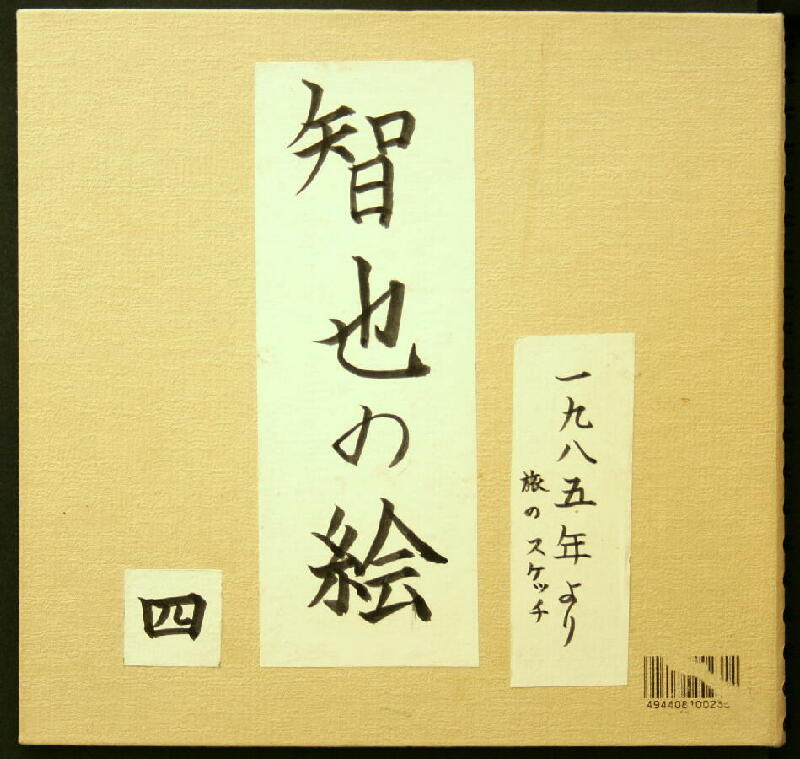 一九八五年より
旅のスケッチ
智也の絵
四